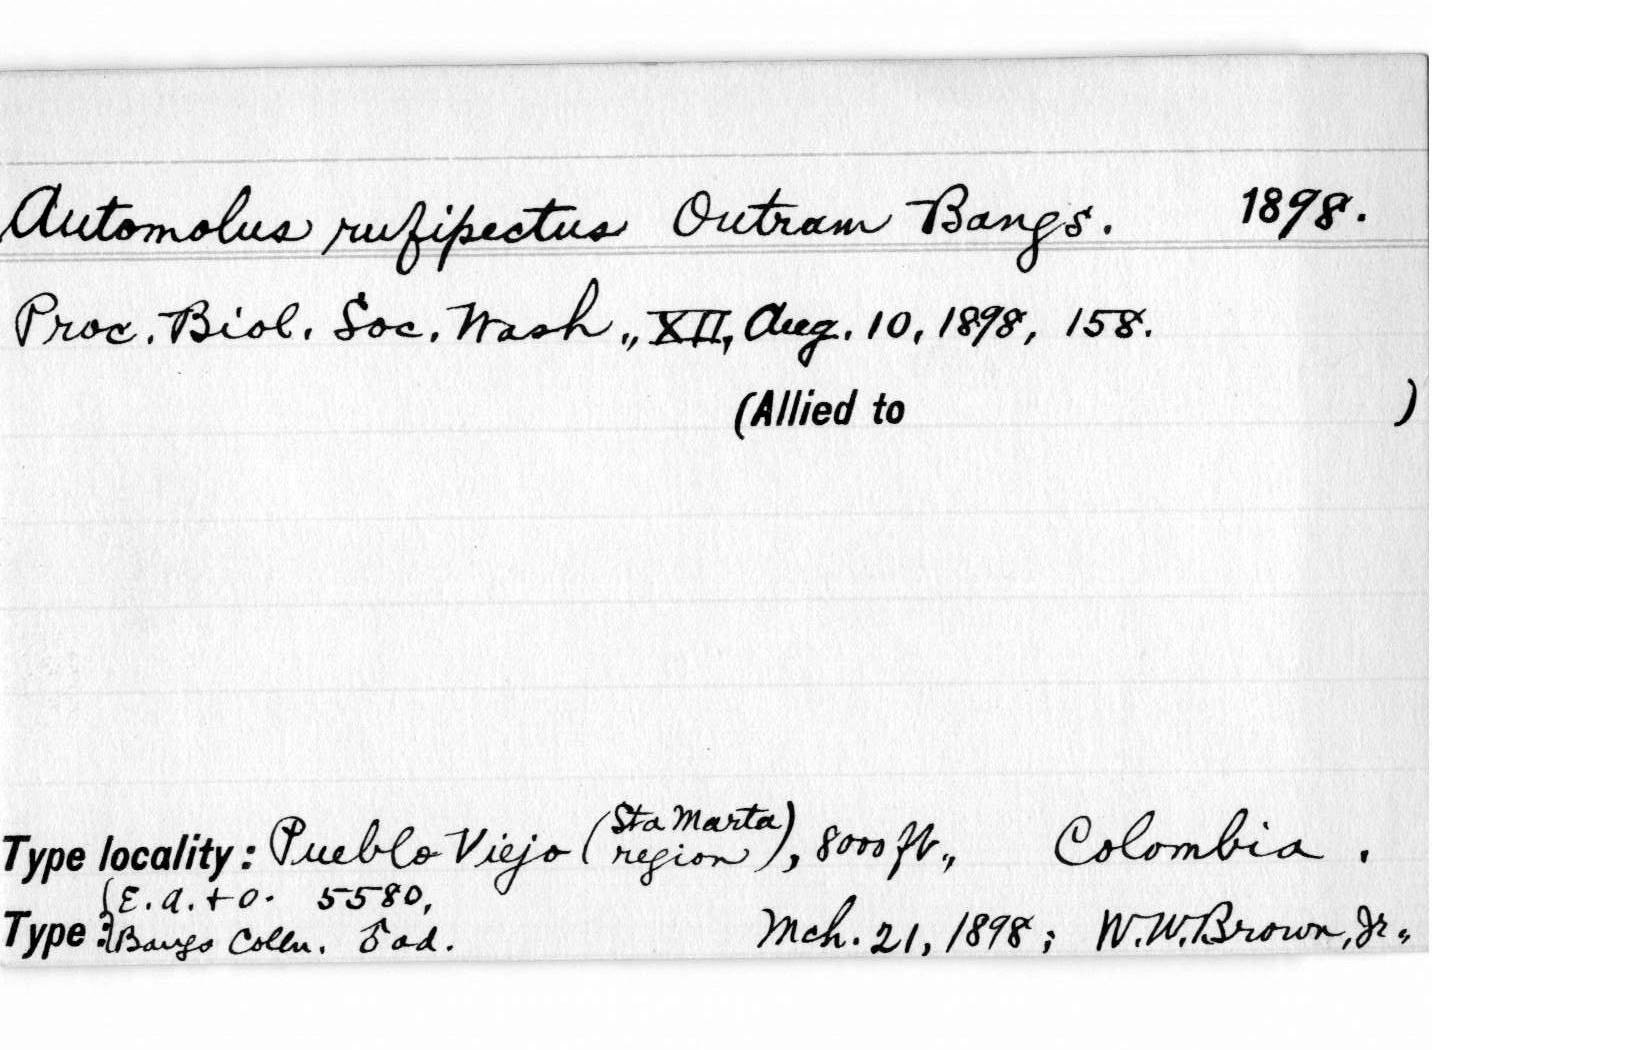 Automolus rufipectus Outram Bangs. 1898.
Proc. Biol. Soc. Wash., XII, Aug. 10, 1898, 158.
(Allied to )
Type locality: Pueblo Viejo (Sta Marta region), 8000 ft., Colombia.
E. A. + O. 5580,
Type: Bangs Colln. ad. Mch. 21, 1898; W. W. Brown, Jr.,